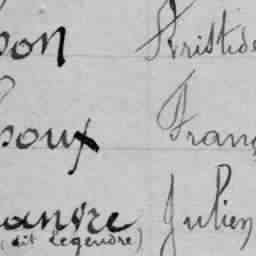 bon Aristide
houx Franç
andre Julien
(dit Legendre)